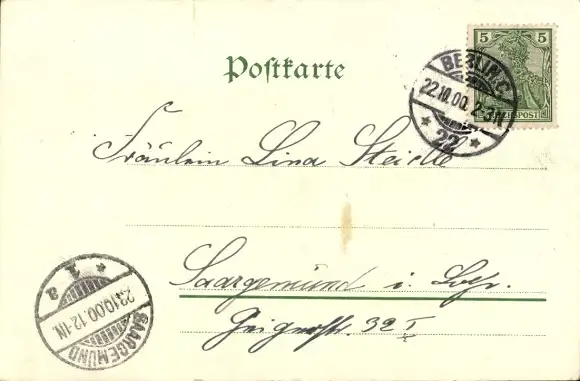 5 5
REICHSPOST
BERLIN, C.
22.10.00. 2-3N.
* 22 *
Postkarte
Fräulein Lina Steidle
Saargemünd i. Lothr.
Geigerstr. 32 I
SAARGEMÜND
23.10.00. 12-1N.
* 1 a